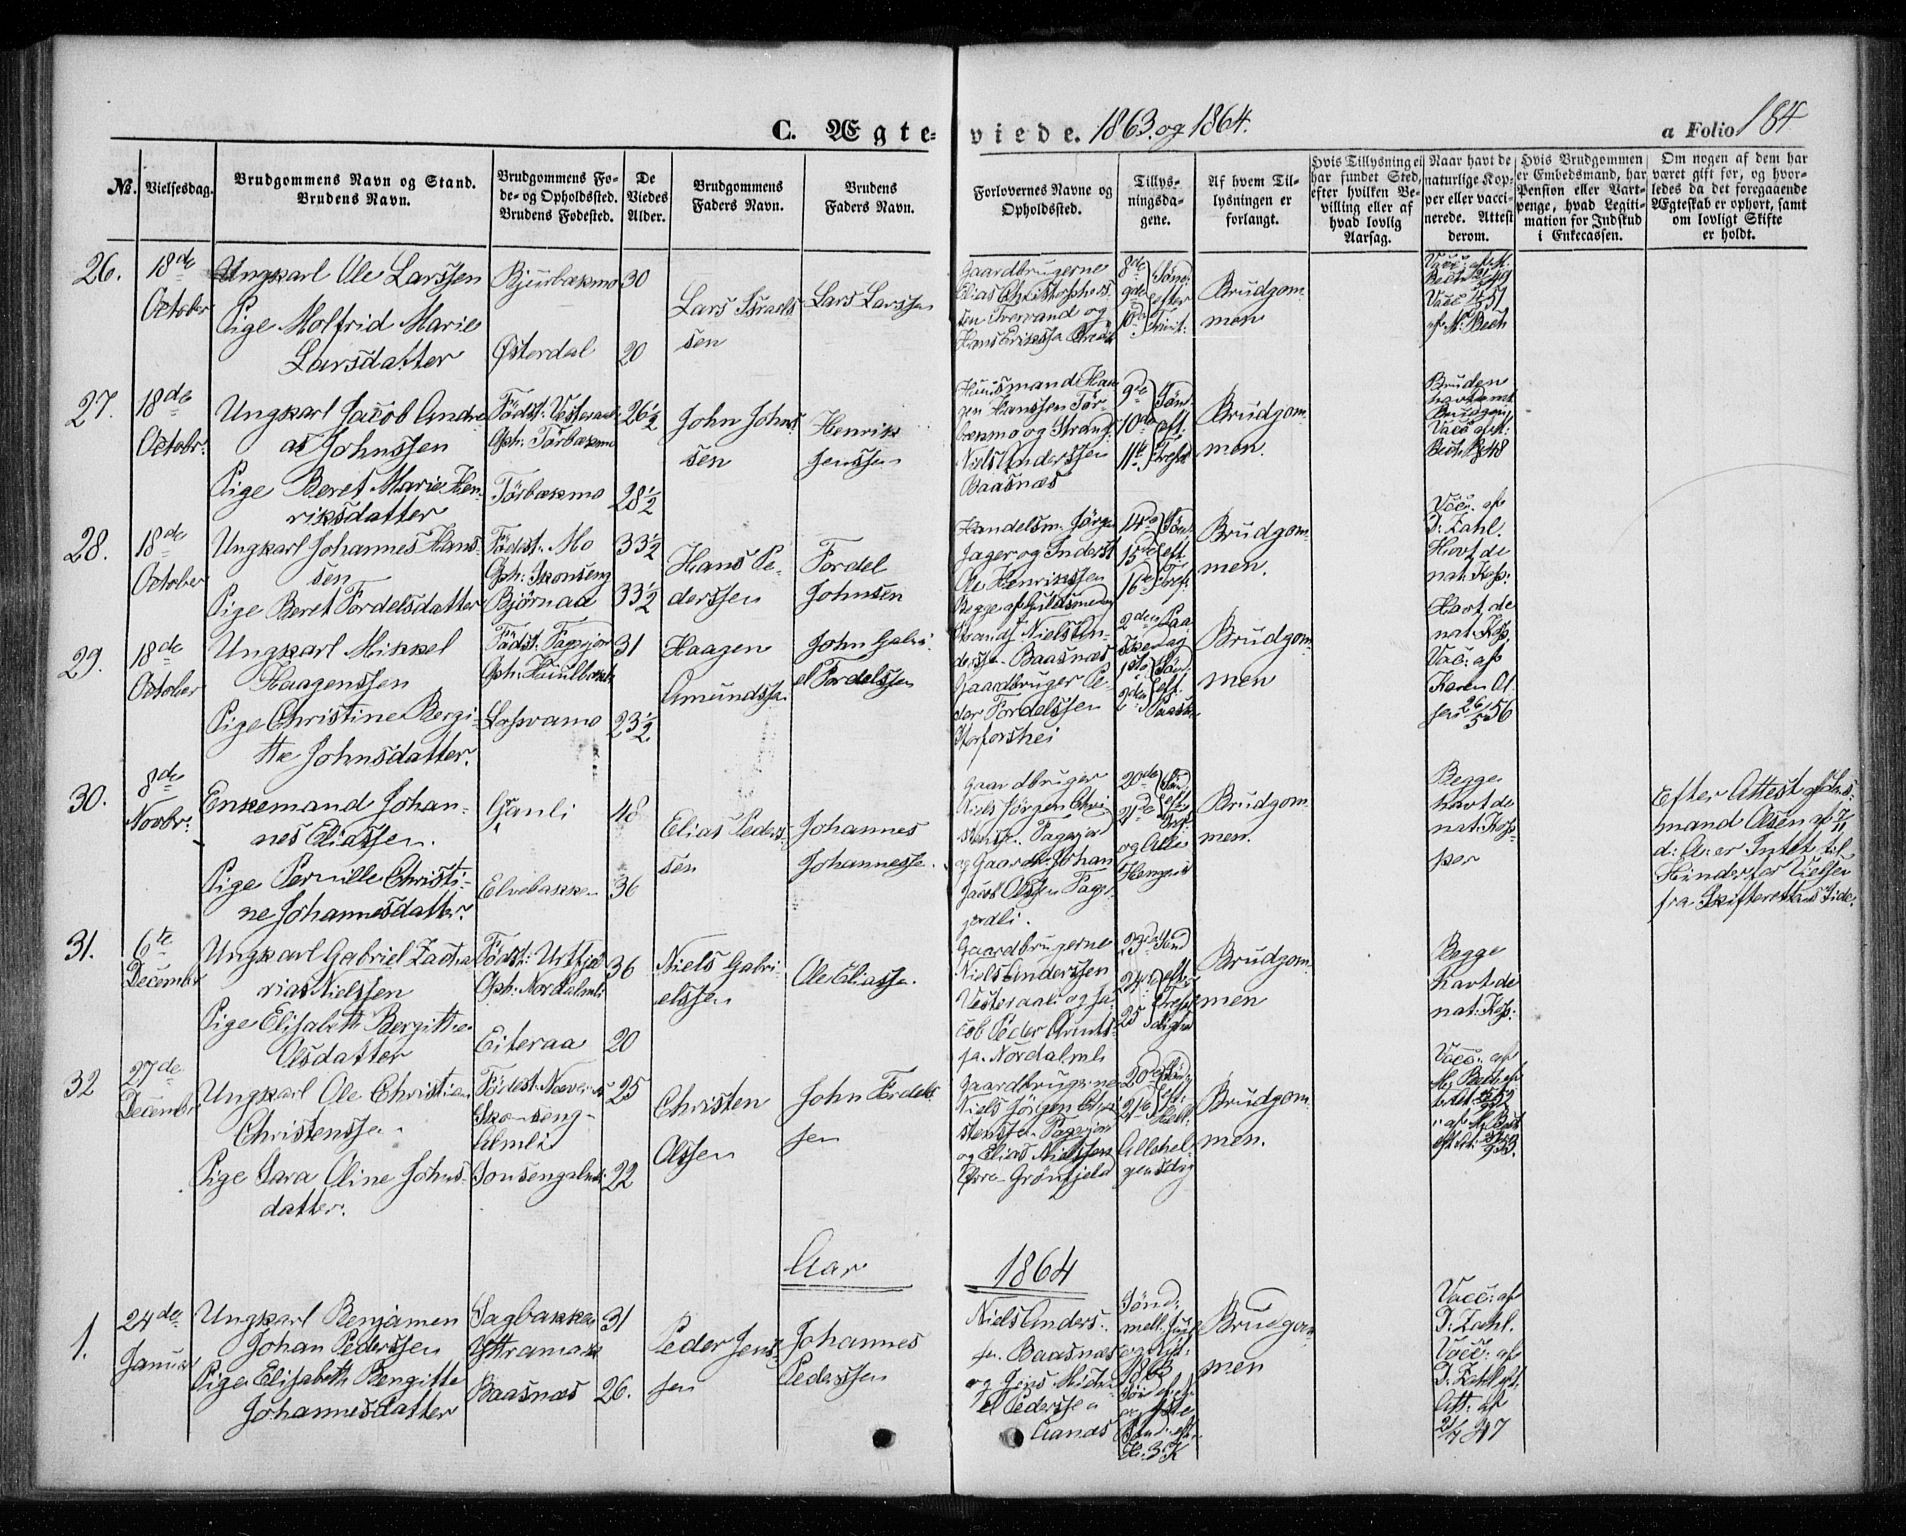 C. Ægteviede. 1863. og 1864.
a Folio 184
No.
Vielsesdag.
Brudgommens Navn og Stand.
Brudens Navn.
Brudgommens Fø-
de- og Opholdssted.
Brudens Fødested.
De
Viedes
Alder.
Brudgommens
Faders Navn.
Brudens
Faders Navn.
Forlovernes Navne og
Opholdssted.
Tillys-
ningsda-
gene.
Af hvem Til-
lysningen er
forlangt.
Hvis Tillysning ei
har fundet Sted,
efter hvilken Be-
villing eller af
hvad lovlig
Aarsag.
Naar havt de
naturlige Kop-
per eller vacci-
nerede. Attest
derom.
Hvis Brudgommen
er Embedsmand, har
Pension eller Vart-
penge, hvad Legiti-
mation for Indskud
i Enkecassen.
Om nogen af dem har
været gift før, og hvor-
ledes da det foregaaende
Ægteskab er ophørt, samt
om lovligt Skifte
er holdt.
26.
18de
October
Ungkarl Ole Larssen
Pige Molfrid Marie
Larsdatter
Bjurbækmo
Østerdal
30
20
Lars Israels
sen
Lars Larssen
Gaardbrugerne
Elias Christophers
sen Tvervand og
Hans Erikssen
8de
9de
10de
Sønd
efter
Trinit:
Brudgom
men
Vacc: af M.
Bech
Vacc
af M: Bech
27.
18de
October
Ungkarl Jacob Andre
as Johnssen
Pige Beret Marie Hen-
riksdatter
Fødest: Vesteraali
Oph: Tørbækmo
Tørbækmo
26½
28½
John Johns
sen
Henrik
Jenssen
Huusmand Haa
gen Hanssen Tør-
bækmo og Strand
Niels Anderssen
Baasnæs
9de
10de
11te
Sønd
eft.
Trefol
Brudgom
men.
Bruden
havt
Brudgom
Vacc af M.
Bech
28.
18de
October
Ungkarl Johannes Hans-
sen
Pige Beret Tordelsdatter
Fødest: Mo
Oph: Skonseng
Bjørnaa
33½
33½
Hans Pe-
derssen
Tordel
Johnsen
Handelsm. Jørgen
Jager og Inderst
Ole Henrikssen
Begge af Guldsmedvig
14de
15de
16de
Sønd
eft
Tref:
Brudgom
men.
Vacc: af
D: Zahl.
Havt de
nat: Kop:
29.
18de
October
Ungkarl Mikkel
Haagenssen
Pige Christine Bergi-
tte Johnsdatter.
Fødst. Fagerjor
Løpsvamo
31
23½
Haagen
Amundssen
John Gabri-
el Tordelssen
Strands Niels An-
derssen Baasnæs
Gaardbruger Pe-
der Tordelssen
Storforshei
2den Paa
skedag
1ste
2den
Sønd
eft.
Paaske
Brudgom
men
Havt de
nat: Kop
Vac: af
Karen
sen 26/5 56
30.
8de
Novbr:
Enkemand Johan-
nes Eliassen.
Pige Pernille Christi-
ne Johannesdatter.
Ganli
Elvebakken
48
36
Elias Peders
sen
Johannes
Johannessen.
Gaardbruger
Niels Jørgen Chri
stensen. Fagerjor
og Gaardb: Johan
Jacob Olssen Fager
jordli.
20de
21de
Sønd
eft
Tref
og Alle
Helgens
Brudgom
men.
Begge
havt de
nat: Kop-
per
Efter Attest af Lens-
mand Olsen af
d: A: er Intet til
Hinder for Vielsen
fra Skifterettens Side.
31.
6te
December
Ungkarl Gabriel Zacha
rias Nielssen
Pige Elisabeth Bergitte
Olsdatter
Fødst: Urtfjeld
Oph: Nordalmli
Eiteraa
36
20
Niels Gabri-
elssen
Ole Eliassen.
Gaardbrugerne
Niels Anderssen
Vesteraali og Ja-
cob Peder Arnts-
sen Nordalmli
23de
24de
25
Sønd
efter
Trefol
dighed
Brudgom
men
Begge
havt de
nat: Kop:
32
27de
December
Ungkarl Ole Christian
Christenssen
Pige Sara Oline Johns-
datter.
Fødest: Næver
Skonseng-
Almli
Skonsengalmli
25
22
Christen
Olssen
John Tordels
sen
Gaardbrugerne
Niels Jørgen Chri
stenssen. Fagerjor
og Elias Nielssen
Øvre Grønfjeld
20de
21de
Sønd
eft
Alle hel-
gensdag
Brudgom
men.
Vacc: af
M. Bech
Aar 1864
1.
24de
Januar
Ungkarl Benjamen
Johan Pederssen
Pige Elisabeth Bergitte
Johannesdatter
Sagbakken
Yttramark
Baasnæs
31
26.
Peder Jens
sen
Johannes
Pederssen
Niels Anders-
sen Baasnæs
og Jens Micha
el Pederssen
Aanæs
Sønd:
mell: Juul
og Nyt:
Sønd. eft.
H. 3. K
Brudgom
men
Vacc: af
D: Zahl.
Vacc: af
D: Zahl eft.
Att: af